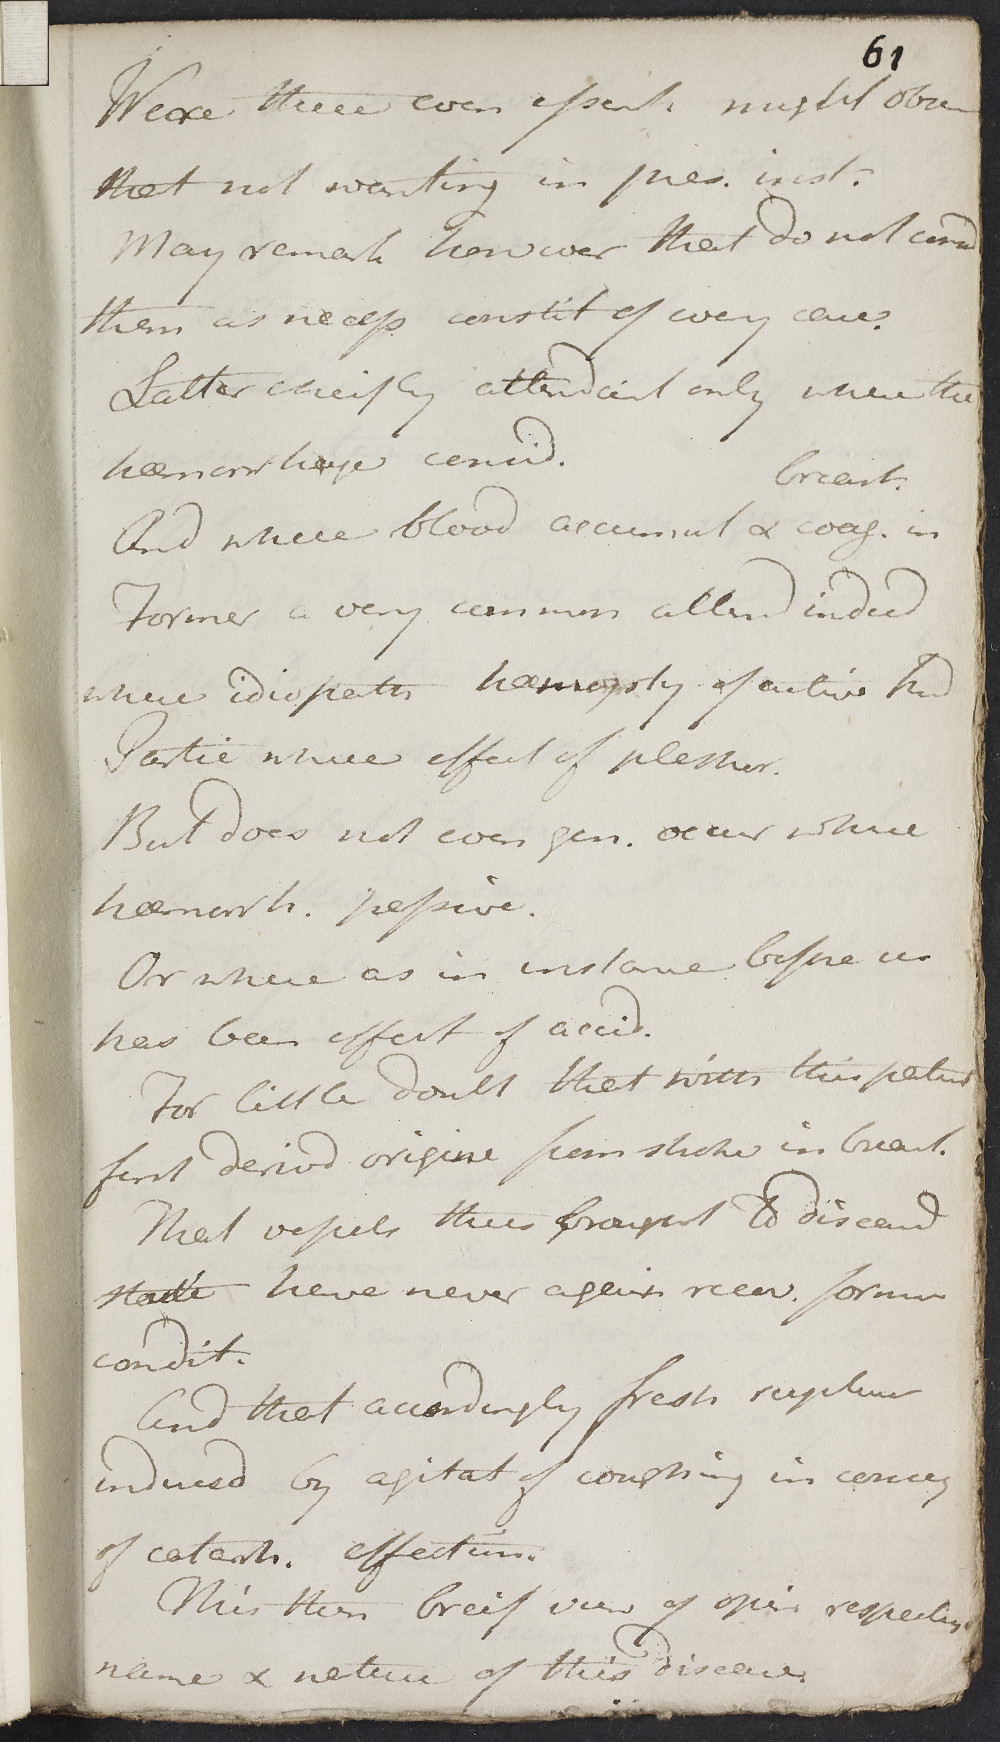 61
Were these even essent. might obse
that not wanting in pres. inst.
May remark however that do not consid
them as necess constit of every case.
Latter cheifly attendant only where the
hæmorrhage consid.
breast.
And where blood accumul & coag. in
Former a very common attend indeed
where idiopath hæmopty of active kind
Partic where effect of plethor.
But does not even gen. occur where
hæmorrh. passive.
Or where as in instance before us
has been effect of accid.
For little doubt that with this patient
first derivd origine from stroke in breast.
That vessels thus brought to diseasd
state have never again recov. former
condit.
And that accordingly fresh rupture
induced by agitat of coughing in conseq
of catarrh. affection.
This then breif view of opin respecting
name & nature of this disease.